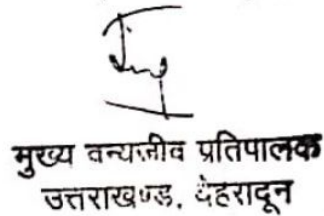 मुख्य वन्यजीव प्रतिपालक
उत्तराखण्ड, देहरादून